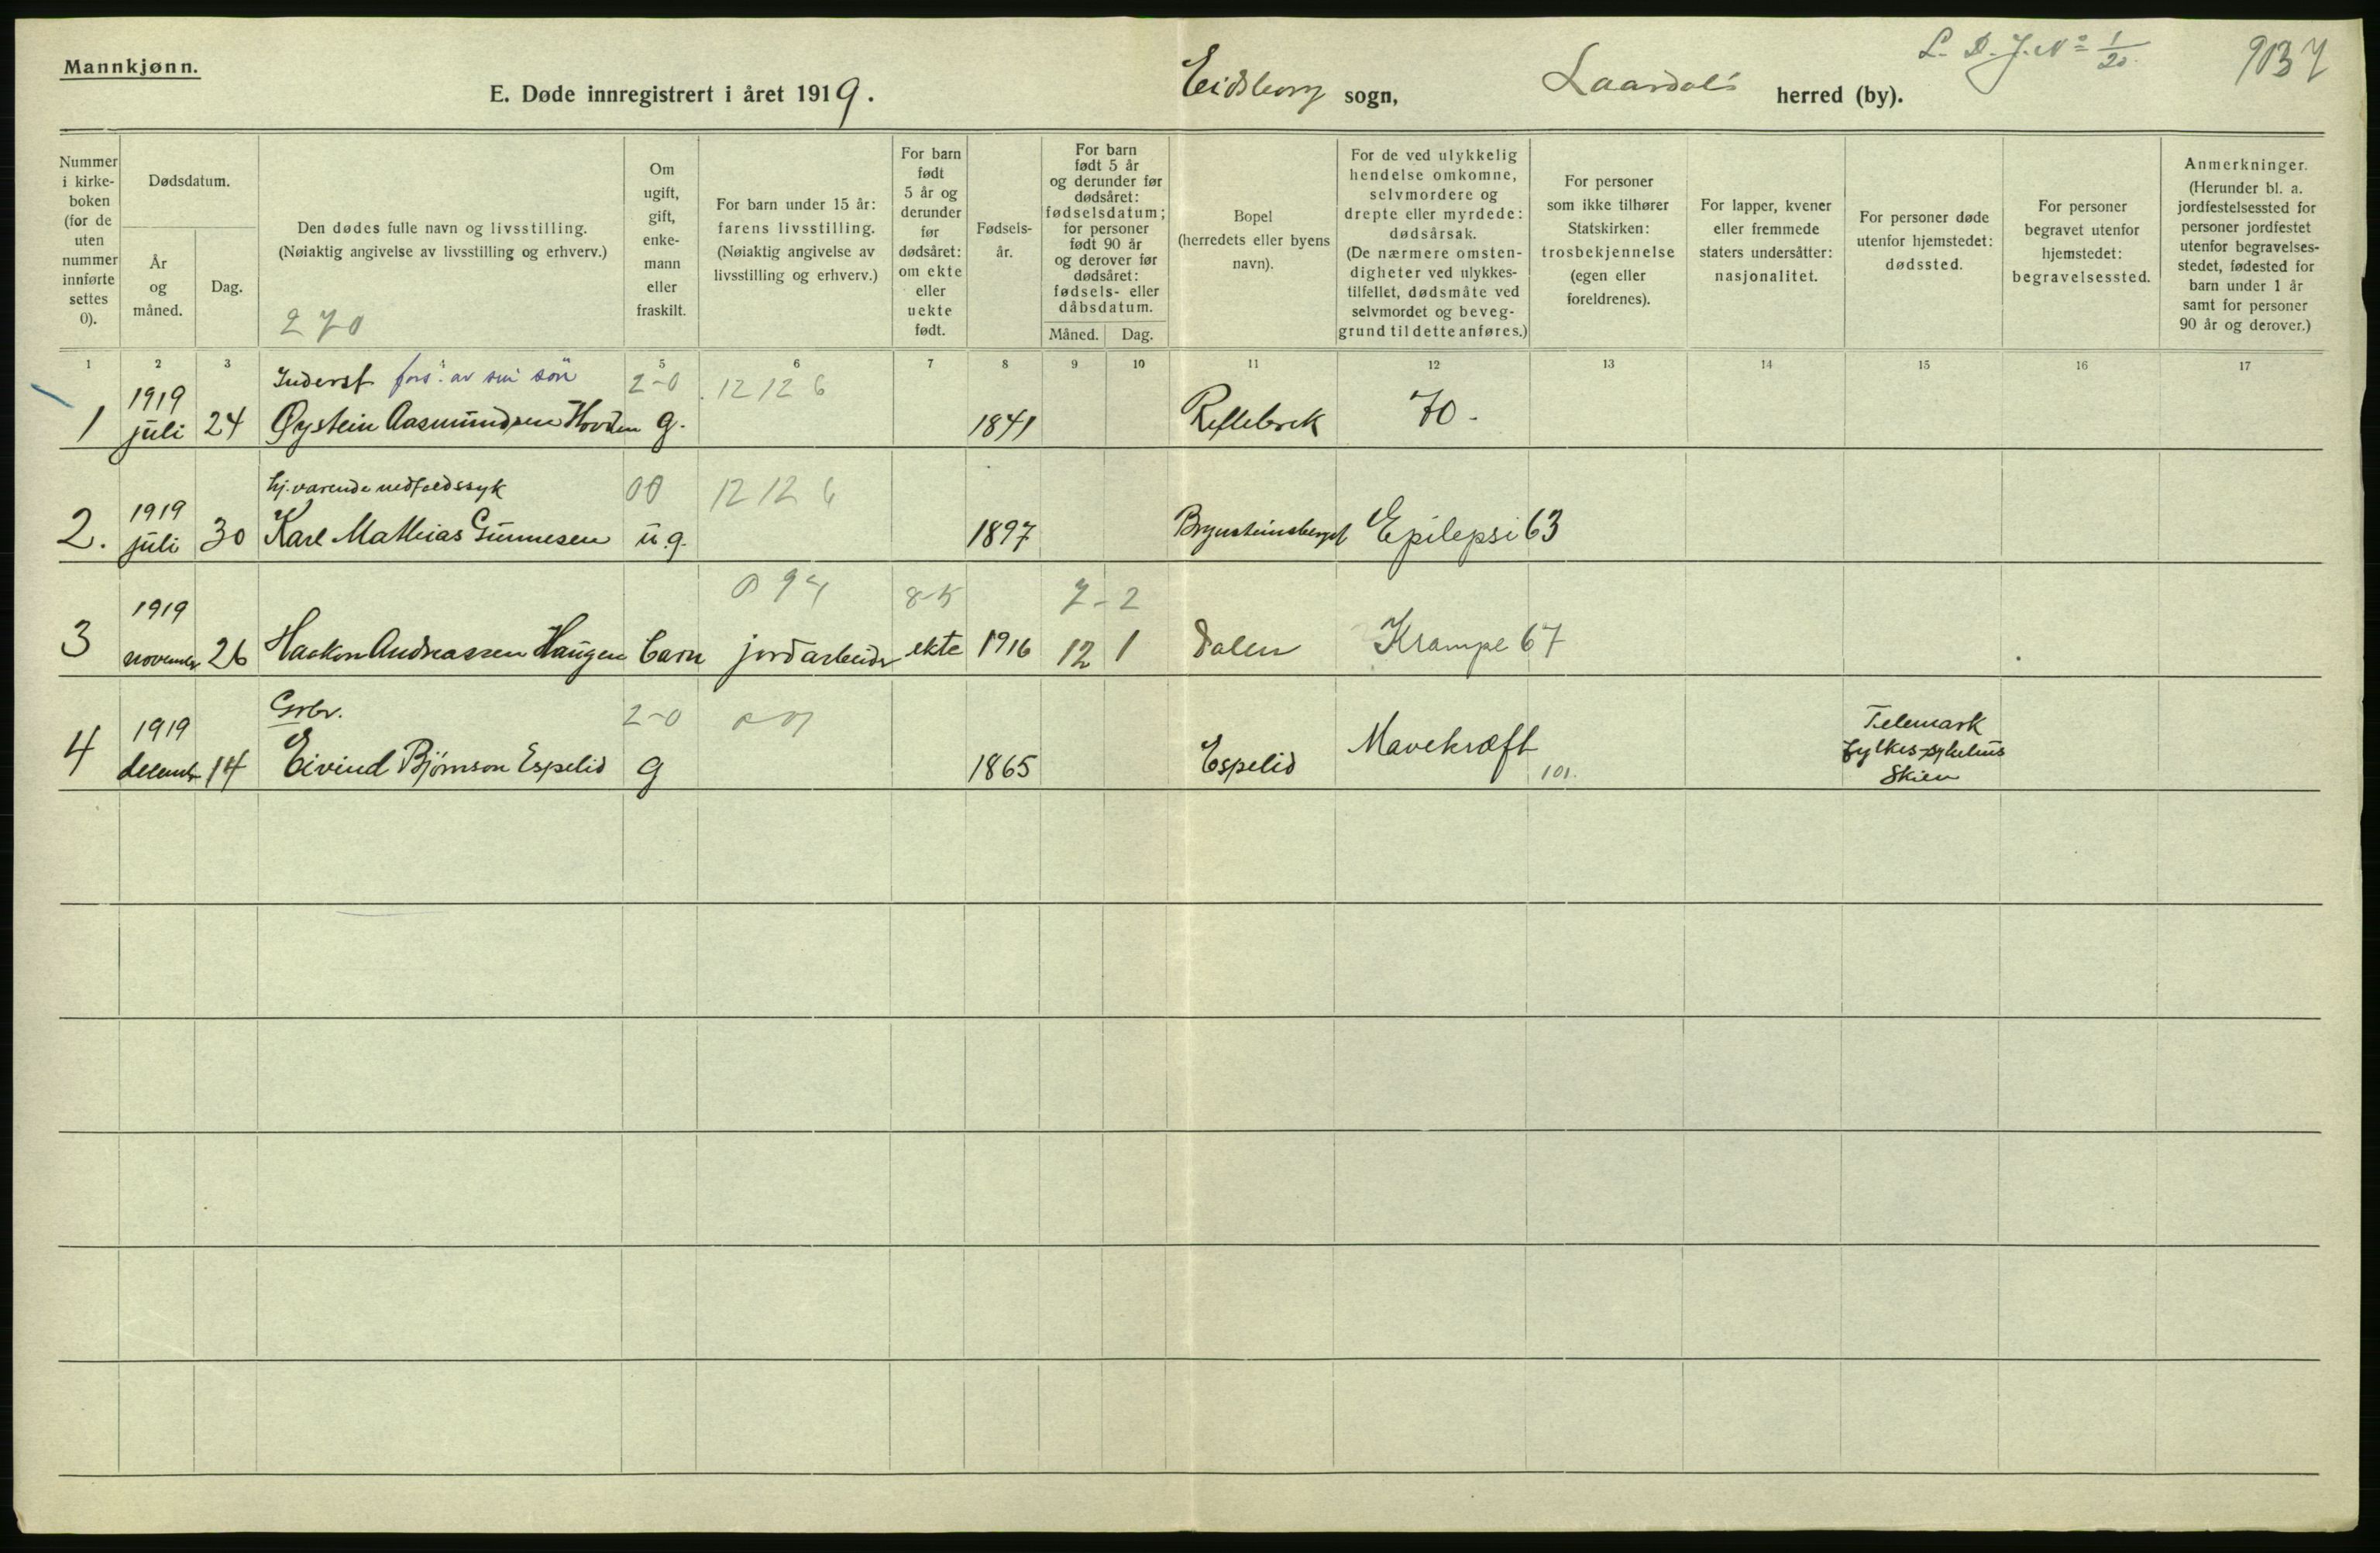 Mannkjønn.
E. Døde innregistrert i året 1919. Eidsborg sogn, Laardal's herred (by).
L. D. J. No 1/20. 9137
Nummer i kirke-boken (for de uten nummer innførte settes 0).
Dødsdatum.
År og måned.
Dag.
Den dødes fulle navn og livsstilling.
(Nøiaktig angivelse av livsstilling og erhverv.)
270
Om ugift, gift, enke-mann eller fraskilt.
For barn under 15 år: farens livsstilling. (Nøiaktig angivelse av livsstilling og erhverv.)
For barn født 5 år og derunder før dødsåret: om ekte eller uekte født.
Fødsels-år.
For barn født 5 år og derunder før dødsåret: fødselsdatum; for personer født 90 år og derover før dødsåret: fødsels- eller dåbsdatum.
Måned. Dag.
Bopel (herredets eller byens navn).
For de ved ulykkelig hendelse omkomne, selvmordere og drepte eller myrdede: dødsårsak. (De nærmere omsten-digheter ved ulykkes-tilfellet, dødsmåte ved selvmordet og beveg-grund til dette anføres.)
For personer som ikke tilhører Statskirken: trosbekjennelse (egen eller foreldrenes).
For lapper, kvener eller fremmede staters undersåtter: nasjonalitet.
For personer døde utenfor hjemstedet: dødssted.
For personer begravet utenfor hjemstedet: begravelsessted.
Anmerkninger. (Herunder bl. a. jordfestelsessted for personer jordfestet utenfor begravelses-stedet, fødested for barn under 1 år samt for personer 90 år og derover.)
1 2 3 5 6 7 8 9 10 11 12 13 14 15 16 17
Inderst fors. av sin søn 2-0 12 12 6
1 1919 juli 24 Øystein Aasmundsen Hovden g. 1841 70.
hj.varende nedfoldssyk 00 12 12 6
2. 1919 juli 30 Karl Mathias Gunnesen u.g. 1897 Brynsteinsberget Epilepsi 63
8-5 7-2
3 1919 november 26 Haakon Andreassen Haugen barn jordarbeider ekte 1916 12 1 Dalen Krampe 67
Grbr. 2-0
4 1919 decembr 14 Eivind Bjørnson Espelid g 1865 Espelid Mavekræft 101. Telemark fylkes-sykehus Skien